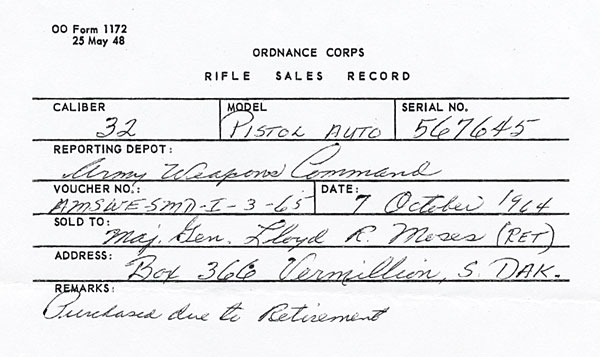 OO Form 1172
25 May 48
ORDNANCE CORPS
RIFLE SALES RECORD
CALIBER MODEL SERIAL NO.
32 PISTOL AUTO 567645
REPORTING DEPOT:
Army Weapons Command
VOUCHER NO.: DATE:
AMSWE-SMD-I-3-65 7 October 1964
SOLD TO:
Maj. Gen. Lloyd R. Moses (RET)
ADDRESS:
Box 366 Vermillion, S. DAK.
REMARKS:
Purchased due to Retirement